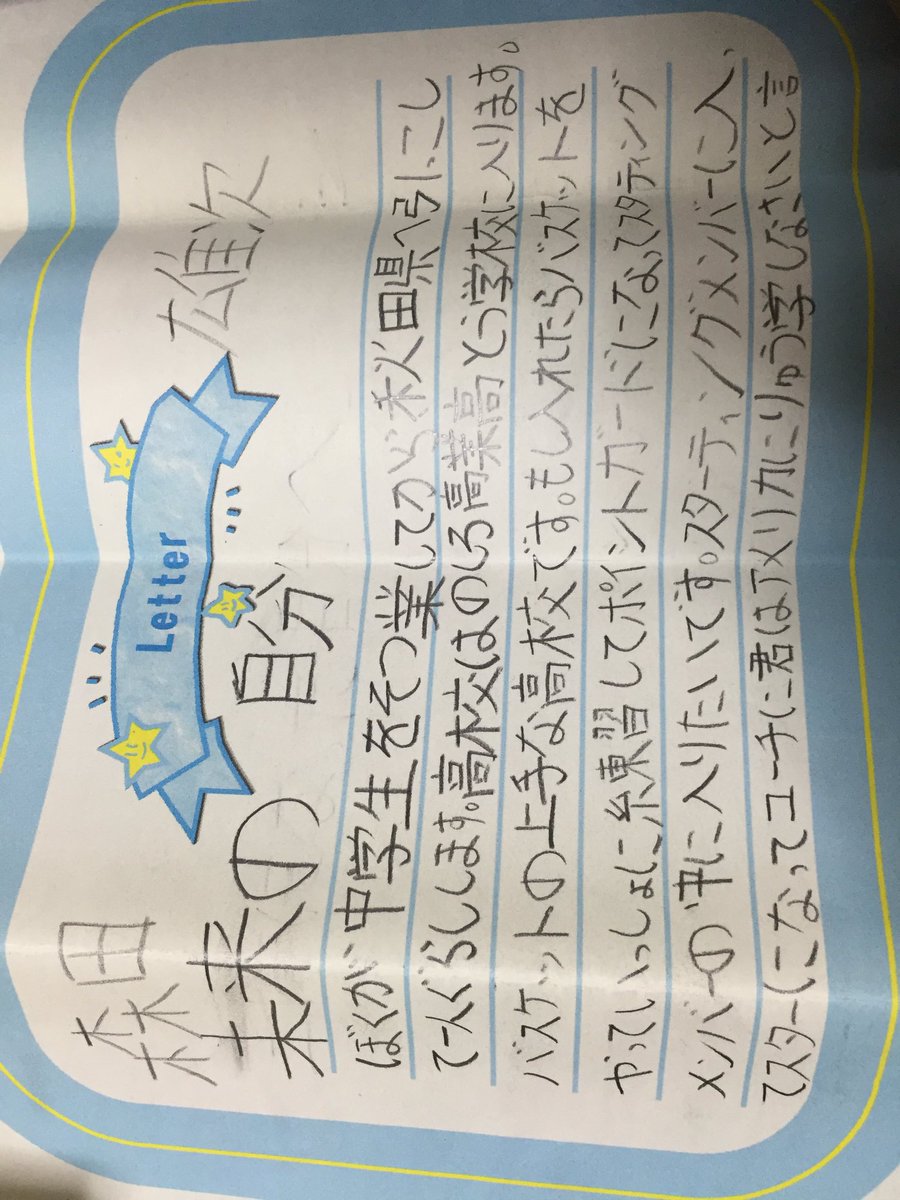 森田 Letter 雄次
未来の自分へ
ぼくが中学生をそつ業してから秋田県へ引っこし
て一人ぐらしします。高校はのしろ高業高とう学校に入ります。
バスケットの上手な高校です。もし入れたらバスケットを
やっていっしょに練習してポイントガードになってスタティング
メンバーの中に入りたいです。スターティングメンバーに入っ
てスターになってコーチに君はアメリカにりゅう学しなさいと言